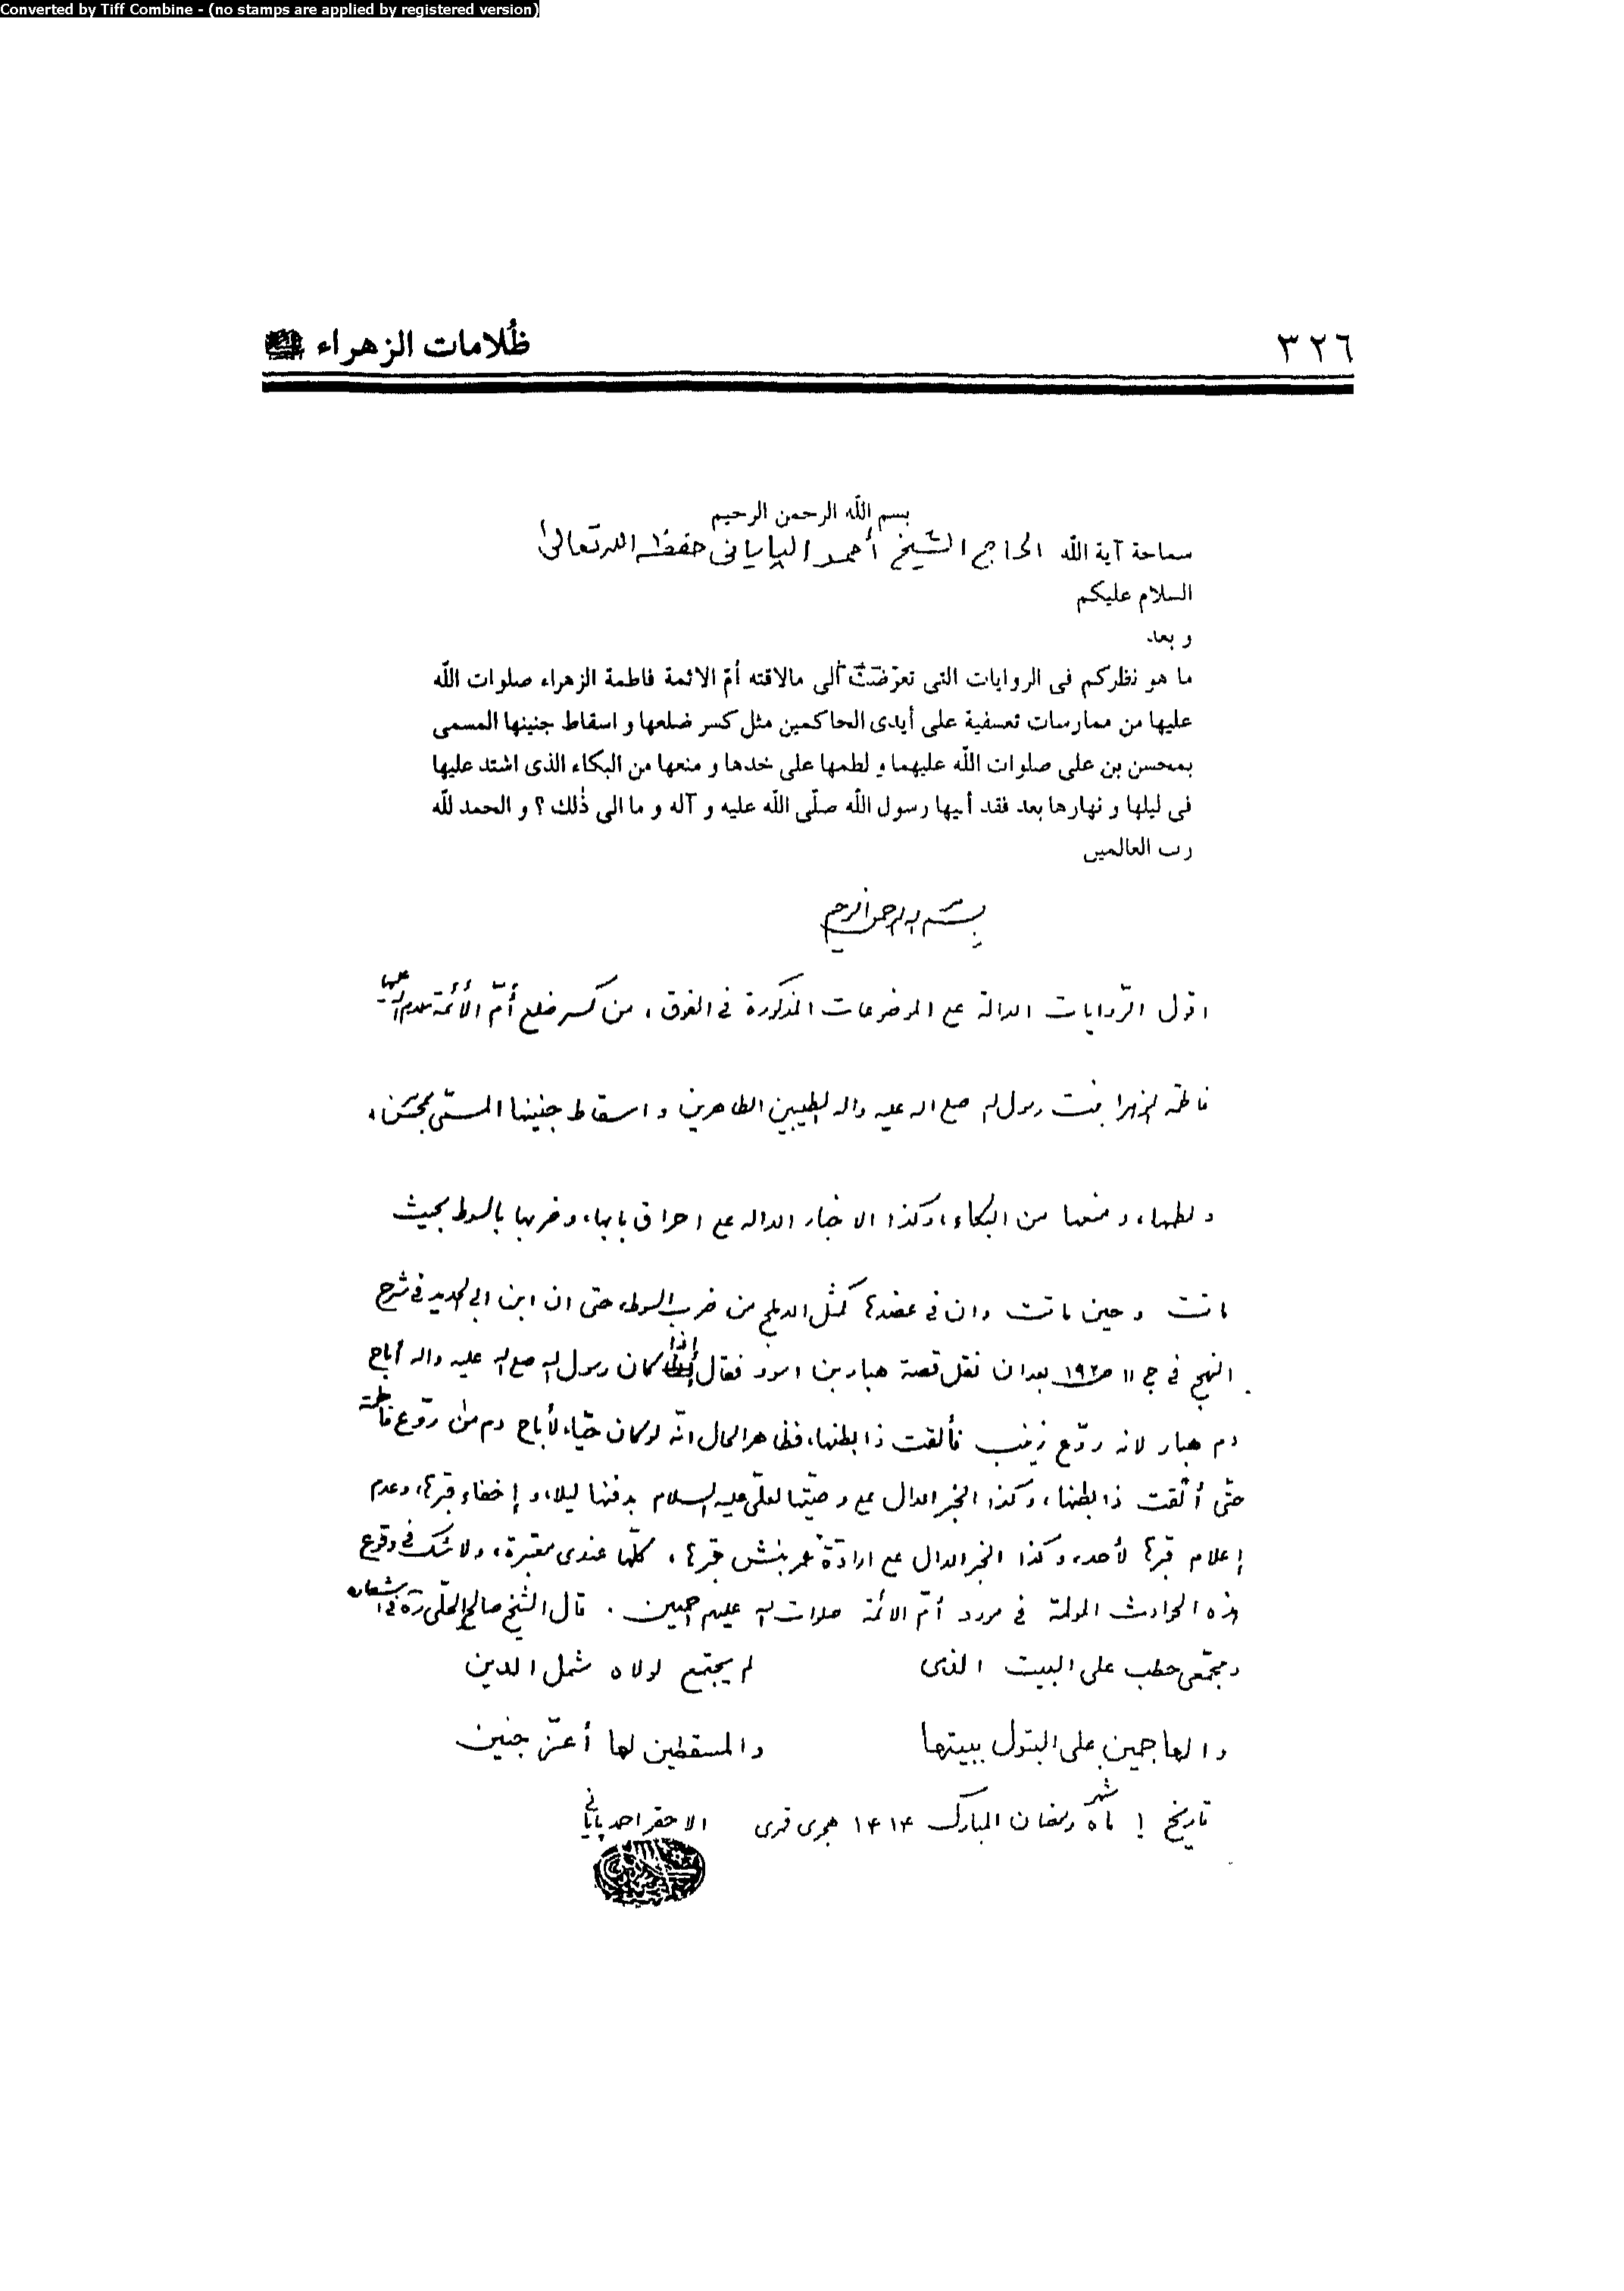 Converted by Tiff Combine - (no stamps are applied by registered version)
٣٢٦
ظُلامات الزهراء
بسم اللّه الرحمن الرحيم
سماحة آية اللّه الحاج الشيخ أحمد الپاياني حفظه الله تعالى
السلام عليكم
و بعد
ما هو نظركم فى الروايات التى تعرّضت الى مالاقته أمّ الائمة فاطمة الزهراء صلوات اللّه
عليها من ممارسات تعسفية على أيدى الحاكمين مثل كسر ضلعها و اسقاط جنينها المسمى
بمحسن بن على صلوات اللّه عليهما و لطمها على خدها و منعها من البكاء الذى اشتد عليها
فى ليلها و نهارها بعد فقد أبيها رسول اللّه صلّى اللّه عليه و آله و ما الى ذٰلك ؟ و الحمد للّه
رب العالمين
بسم الله الرحمن الرحيم
اقول الرّوايات الدالة على الموضوعات المذكورة في الفوق ، من كسر ضلع أمّ الأئمة سلام الله عليها
فاطمة الزهرا بنت رسول الله صلى الله عليه واله الطيبين الطاهرين و اسقاط جنينها المسمّى بمحسن ،
و لطمها ، و منعها من البكاء ، وكذا الاخبار الداله على احراق بابها ، و ضربها بالسوط بحيث
ماتت و حين ماتت وان في عضدها كمثل الدملج من ضرب السوط، حتى ان ابن ابي الحديد في شرح
النهج في ج ١١ ص ١٩٢ بعد ان نقل قصة هبار بن اسود فقال إذا كان رسول الله صلى الله عليه واله أباح
دم هبار لانه روّع زينب فألقت ذا بطنها، فظاهر الحال انّه لو كان حيّا، لأباح دم من روّع فاطمة
حتّى ألقت ذا بطنها ، وكذا الخبر الدال على وصيّتها لعلى عليه السلام بدفنها ليلا، و إخفاء قبرها، وعدم
إعلام قبرها لأحد، وكذا الخبر الدال على ارادة عمر بنبش قبرها ، كلّها عندى معتبرة ، ولا شك في وقوع
هذه الحوادث المولمة في مورد أمّ الائمة صلوات الله عليهم اجمعين . قال الشيخ صالح الحلّى ره في اشعاره
ومجمّعى حطب على البيت الذى لم يجتمع لولاه شمل الدين
والهاجمين على البتول ببيتها والمسقطين لها أعزّ جنين
تاريخ ماه شهر رمضان المبارك ١٤١٤ هجرى قمرى الاحقر احمد پاياني